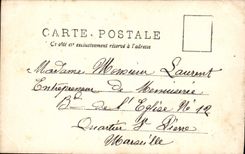 CARTE POSTALE
Ce côté est exclusivement réservé à l'adresse
Madame Monsieur Laurent
Entrepreneur de Menuiserie
Bd de l'Eglise No 12
Quartier St Pierre
Marseille